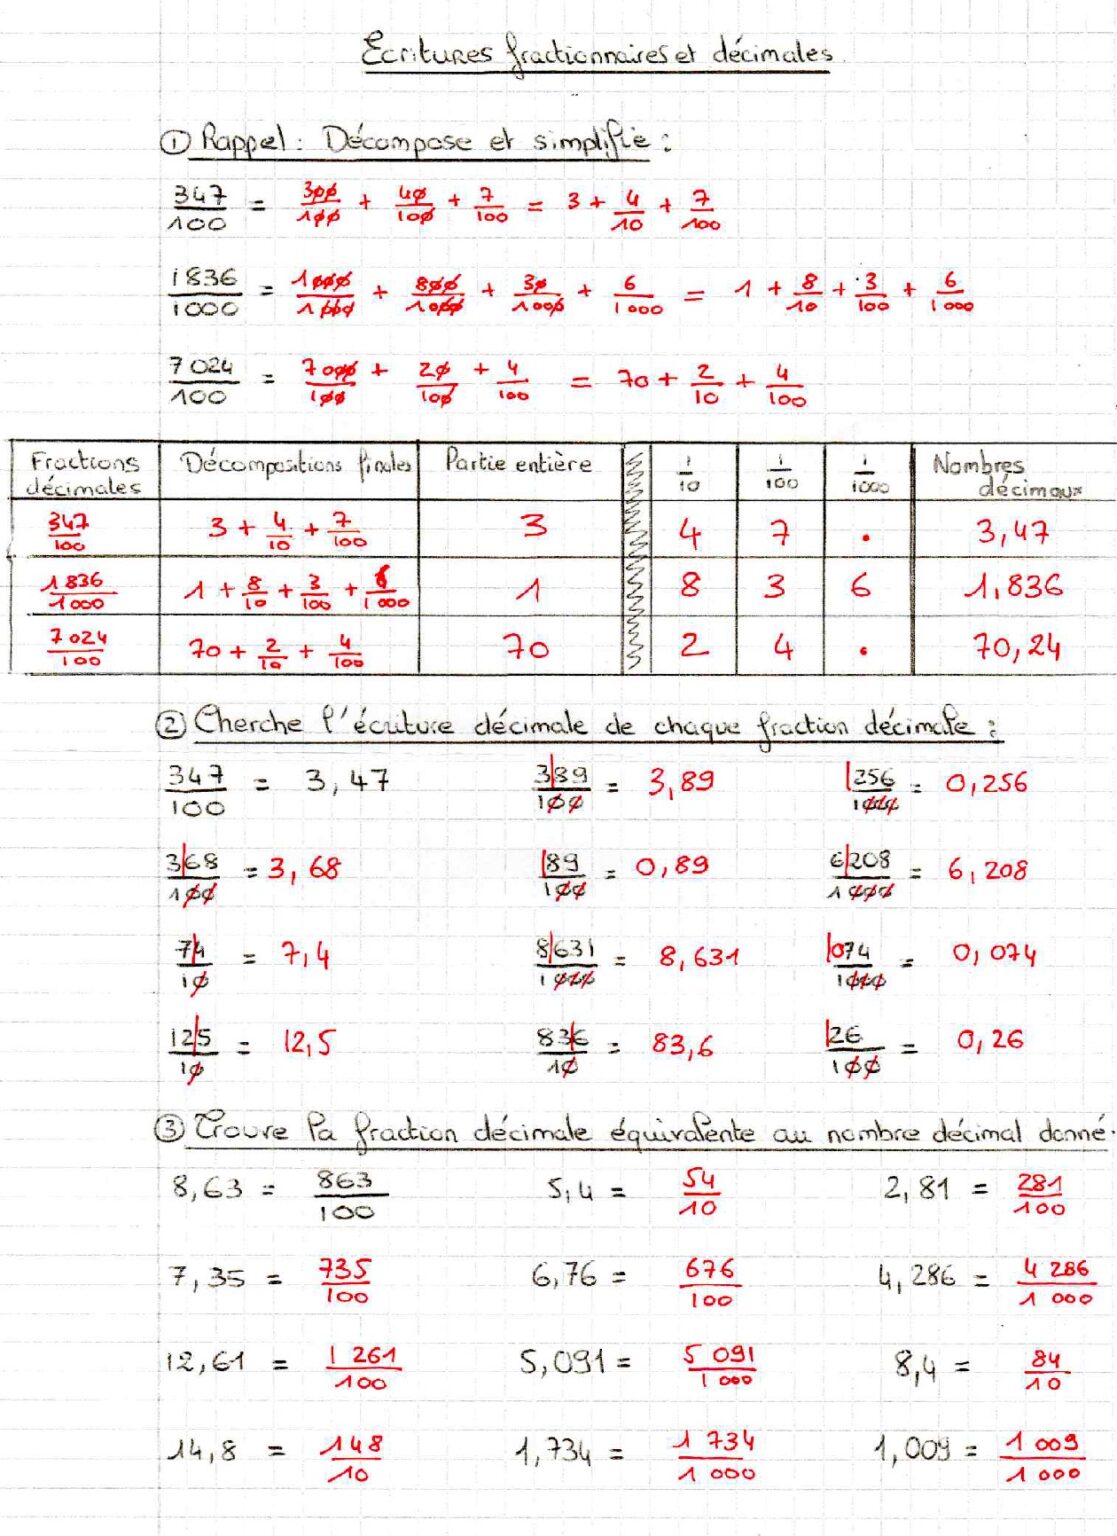 Ecritures fractionnaires et décimales
① Rappel : Décompose et simplifie :
347/100 = 300/100 + 40/100 + 7/100 = 3 + 4/10 + 7/100
1836/1000 = 1000/1000 + 800/1000 + 30/1000 + 6/1000 = 1 + 8/10 + 3/100 + 6/1000
7024/100 = 7000/100 + 20/100 + 4/100 = 70 + 2/10 + 4/100
Fractions décimales | Décompositions finales | Partie entière | 1/10 | 1/100 | 1/1000 | Nombres décimaux
347/100 | 3 + 4/10 + 7/100 | 3 | 4 | 7 | . | 3,47
1836/1000 | 1 + 8/10 + 3/100 + 6/1000 | 1 | 8 | 3 | 6 | 1,836
7024/100 | 70 + 2/10 + 4/100 | 70 | 2 | 4 | . | 70,24
② Cherche l'écriture décimale de chaque fraction décimale :
347/100 = 3,47 389/100 = 3,89 256/1000 = 0,256
368/100 = 3,68 89/100 = 0,89 6208/1000 = 6,208
74/10 = 7,4 8631/1000 = 8,631 074/1000 = 0,074
125/10 = 12,5 836/10 = 83,6 26/100 = 0,26
③ Trouve la fraction décimale équivalente au nombre décimal donné.
8,63 = 863/100 5,4 = 54/10 2,81 = 281/100
7,35 = 735/100 6,76 = 676/100 4,286 = 4 286/1 000
12,61 = 1 261/100 5,091 = 5 091/1 000 8,4 = 84/10
14,8 = 148/10 1,734 = 1 734/1 000 1,009 = 1 009/1 000